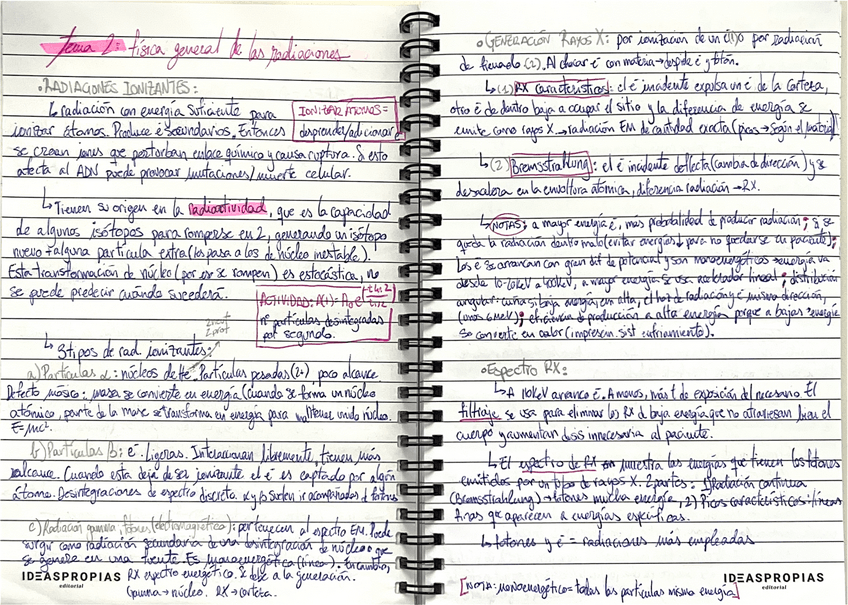 Tema 2: física general de las radiaciones
• RADIACIONES IONIZANTES:
↳ radiación con energía suficiente para
ionizar átomos. Produce é secundarios. Entonces
se crean iones que perturban enlace químico y causa ruptura. Si esto
afecta al ADN puede provocar mutaciones/muerte celular.
IONIZAR ÁTOMOS =
desprender/adicionar é
↳ Tienen su origen en la radioactividad, que es la capacidad
de algunos isótopos para romperse en 2, generando un isótopo
nuevo + alguna partícula extra (les pasa a los de núcleo inestable).
Esta transformación de núcleo (por eso se rompen) es estocástica, no
se puede predecir cuándo sucederá.
ACTIVIDAD: A(t) = A₀e
nº partículas desintegradas
por segundo.
↳ 3 tipos de rad ionizantes:
2 neut
2 prot
a) Partículas α: núcleos de He. Partículas pesadas (2+) poco alcance.
Defecto másico: masa se convierte en energía (cuando se forma un núcleo
atómico, parte de la masa se transforma en energía para mantener unido núcleo.
E=mc².
b) Partículas β: é. Ligeras. Interaccionan libremente, tienen más
alcance. Cuando esta deja de ser ionizante el é es captado por algún
átomo. Desintegraciones de espectro discreto. α y β suelen ir acompañadas de fotones
c) Radiación gamma, fotones (electromagnética): pertenecen al espectro EM. Puede
surgir como radiación secundaria de una desintegración de núcleo o que
se genera en una fuente. Es monoenergética (línea). En cambio,
RX espectro energético. Se debe a la generación.
Gamma → núcleo. RX → corteza.
IDEASPROPIAS
editorial
• GENERACIÓN RAYOS X: por ionización de un é (1) o por radiación
de frenado (2). Al chocar é con materia → despide é y fotón.
↳ (1) RX característicos: el é incidente expulsa un é de la corteza,
otro é de dentro baja a ocupar el sitio y la diferencia de energía se
emite como rayos X → radiación EM de cantidad exacta (picos → según el material)
↳ (2) Bremsstrahlung: el é incidente deflecta (cambia de dirección) y se
desacelera en la envoltura atómica, diferencia radiación → RX.
↳ NOTAS: a mayor energía é, más probabilidad de producir radiacion; si se
queda la radiación dentro malo (evitar energías ↓ para no quedarse en paciente);
Los é se arrancan con gran dif de potencial y son monoenergéticos → energía va
desde 10-20keV a 400keV, a mayor energía se usa acelerador lineal; distribución
angular: cuña si baja energía, en alta, el haz de radiación y é misma dirección,
(unos 6 MeV); eficiencia de producción a alta energía porque a bajas energía
se convierte en calor (imprescin. sist enfriamiento).
• Espectro RX:
↳ A 10keV arranco é. A menos, más t de exposición del necesario. El
filtraje se usa para eliminar los RX d baja energía que no atraviesan bien el
cuerpo y aumentan dosis innecesaria al paciente.
↳ El espectro de RX muestra las energías que tienen los fotones
emitidos por un tubo de rayos X. 2 partes: 1) radiación continua
(Bremsstrahlung) → fotones mucha energía, 2) Picos característicos: líneas
finas que aparecen a energías específicas.
↳ fotones y é = radiaciones más empleadas
[NOTA: monoenergético = todas las partículas misma energía]
IDEASPROPIAS
editorial